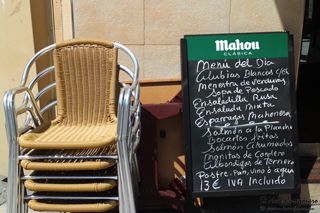 Mahou
CLÁSICA
Menú del Día
Alubias Blancas c/
Menestra de verduras
Sopa de Pescado
Ensaladilla Rusa
Ensalada Mixta
Esparragos Mahonesa
Salmón a la Plancha
Bocartes fritos
Salmón Ahumado
Manitas de Cordero
Albondigas de Ternera
Postre, Pan, vino ó agua
13€ IVA Incluido